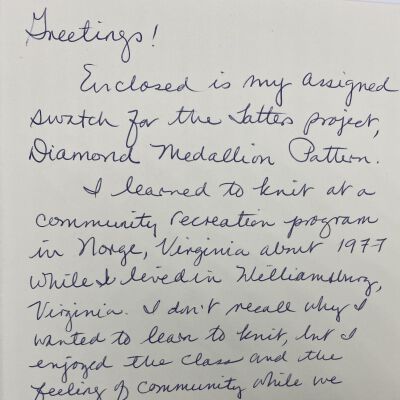 Greetings!
Enclosed is my assigned
swatch for the Tatters project,
Diamond Medallion Pattern.
I learned to knit at a
community recreation program
in Norge, Virginia about 1977
while I lived in Williamsburg,
Virginia. I don't recall why I
wanted to learn to knit, but I
enjoyed the class and the
feeling of community while we